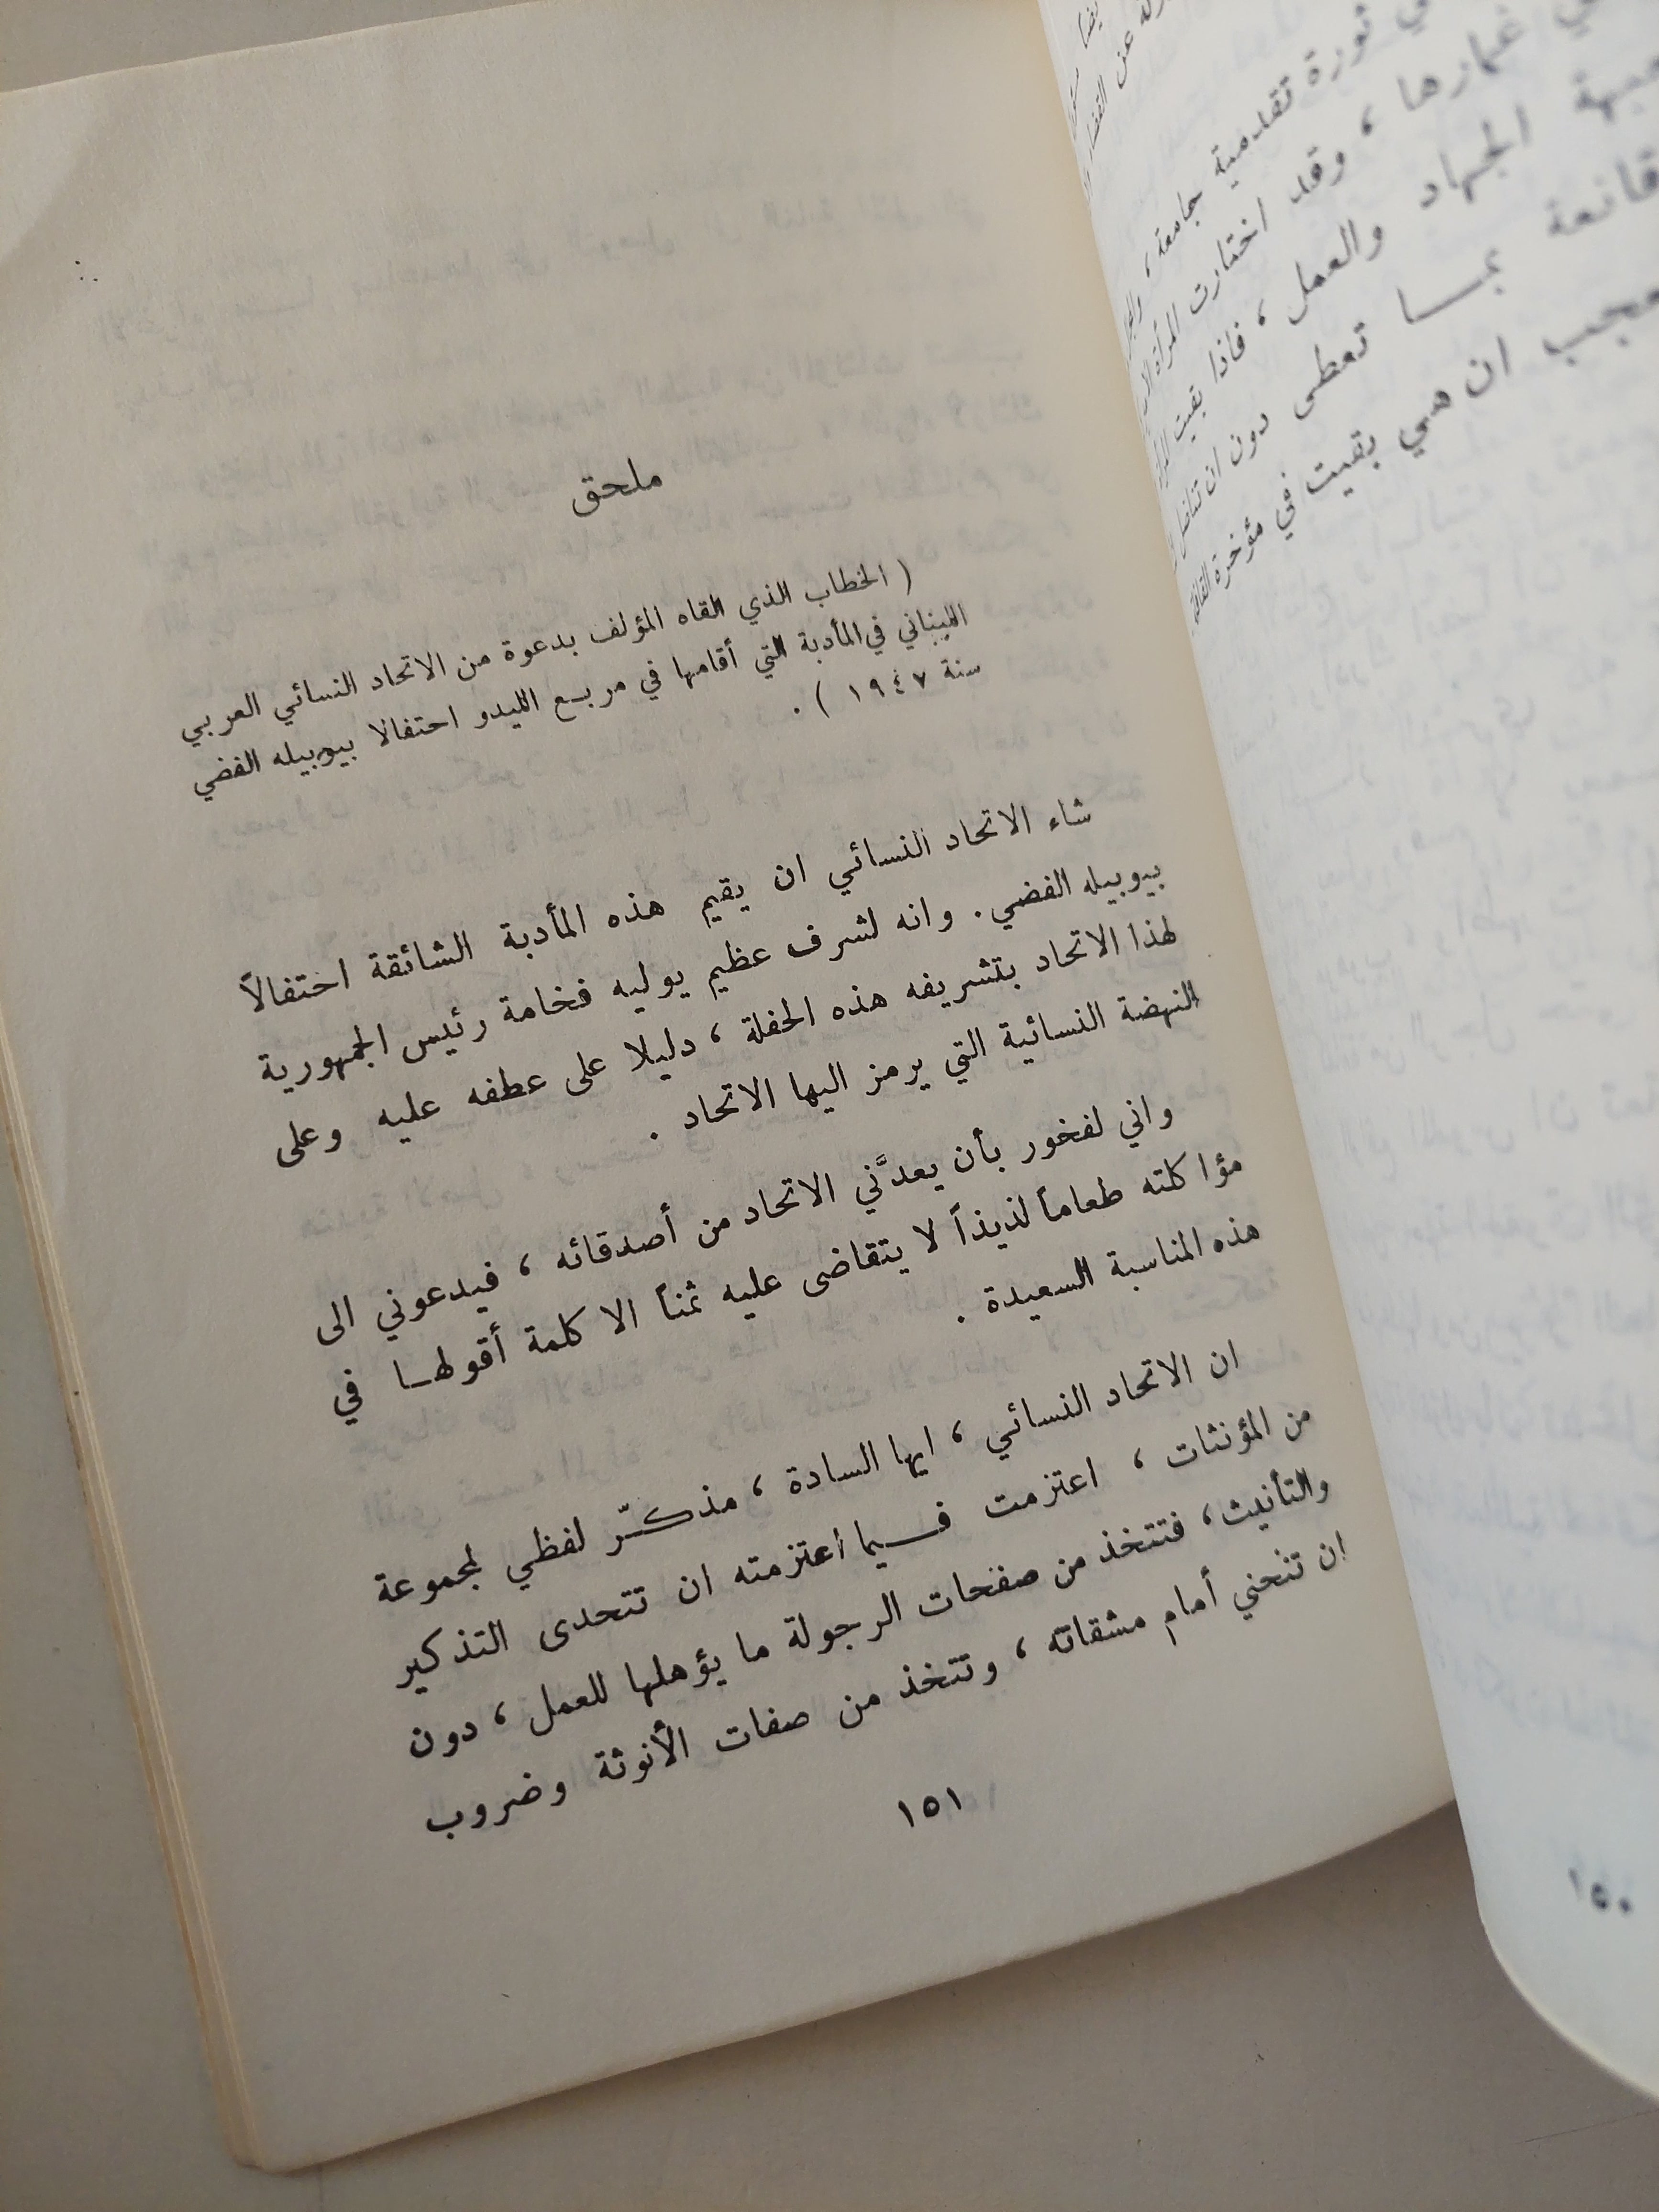 ثورة تقدمية جامعة ،
غمارها ، وقد اختارت المرأة
الجهاد والعمل ، فاذا بقيت
قانعة بمسا تعطى دون ان تناضل
ان هي بقيت في مؤخرة القافلة
١٥٠
ملحق
( الخطاب الذي القاه المؤلف بدعوة من الاتحاد النسائي العربي
اللبناني في المأدبة التي أقامها في مربع الليدو احتفالا بيوبيله الفضي
سنة ١٩٤٧ ) .
شاء الاتحاد النسائي ان يقيم هذه المأدبة الشائقة احتفالاً
بيوبيله الفضي . وانه لشرف عظيم يوليه فخامة رئيس الجمهورية
لهذا الاتحاد بتشريفه هذه الحفلة ، دليلا على عطفه عليه وعلى
النهضة النسائية التي يرمز اليها الاتحاد .
واني لفخور بأن يعدَّني الاتحاد من أصدقائه ، فيدعوني الى
مؤاكلته طعاماً لذيذاً لا يتقاضى عليه ثمناً الا كلمة أقولها في
هذه المناسبة السعيدة .
ان الاتحاد النسائي ، ايها السادة ، مذكّر لفظي لمجموعة
من المؤنثات ، اعتزمت فيما اعتزمته ان تتحدى التذكير
والتأنيث ، فتتخذ من صفحات الرجولة ما يؤهلها للعمل ، دون
ان تنحني أمام مشقاته ، وتتخذ من صفات الأنوثة وضروب
١٥١